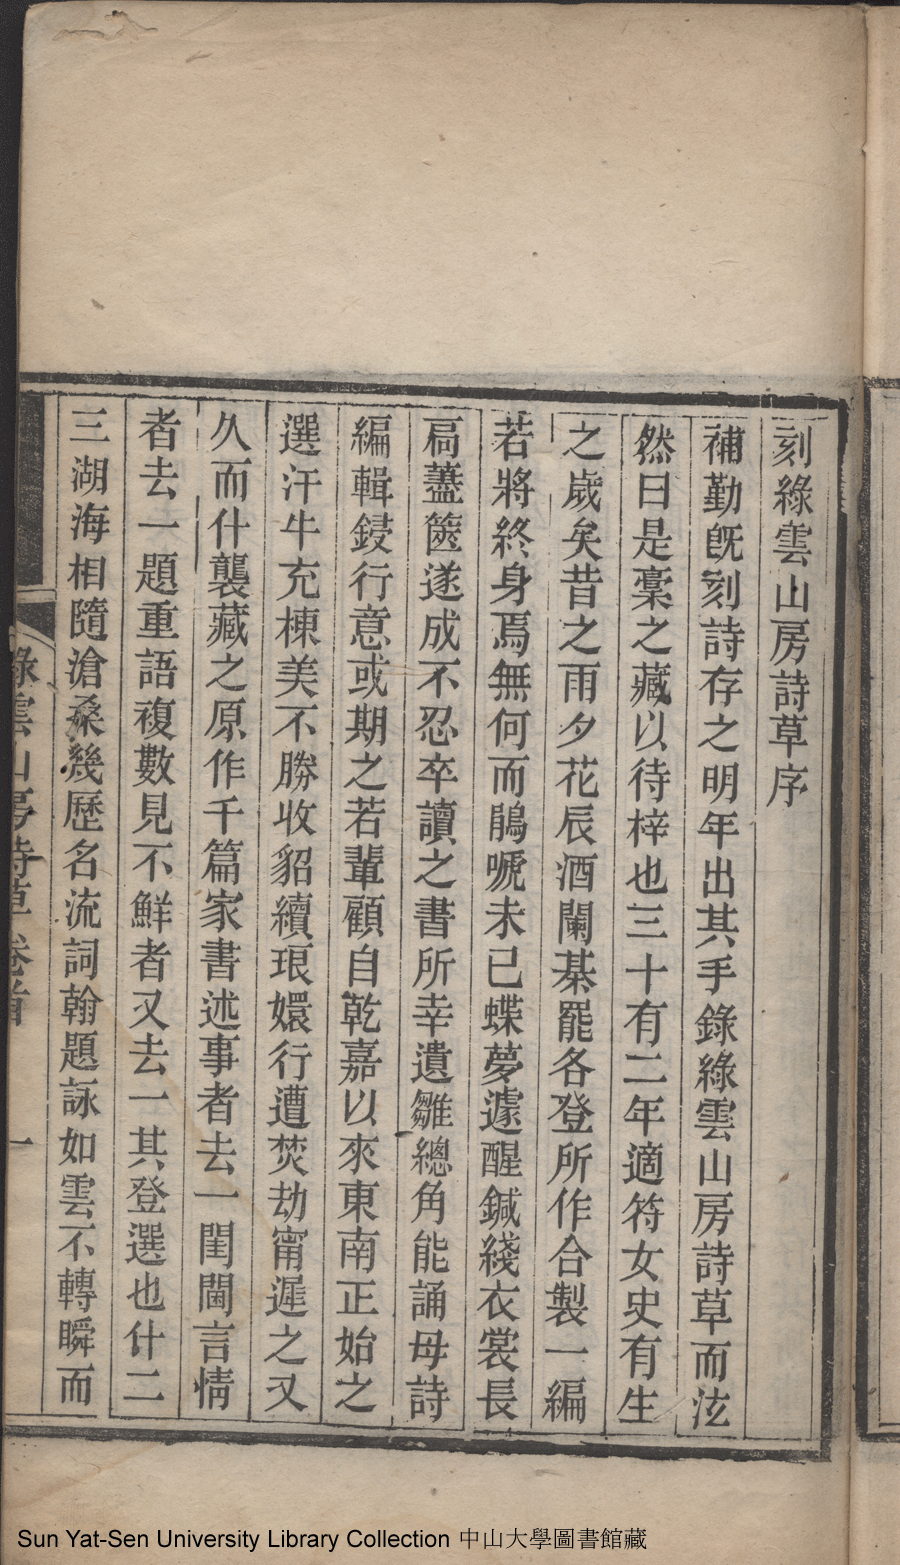 刻綠雲山房詩草序
補勤旣刻詩存之明年出其手錄綠雲山房詩草而泫
然曰是稾之藏以待梓也三十有二年適符女史有生
之歲矣昔之雨夕花辰酒闌棊罷各登所作合製一編
若將終身焉無何而鵑嗁未已蝶夢遽醒鍼綫衣裳長
扃藎篋遂成不忍卒讀之書所幸遺雛總角能誦母詩
編輯鋟行意或期之若輩顧自乾嘉以來東南正始之
選汗牛充棟美不勝收貂續琅嬛行遭焚劫甯遲之又
久而什襲藏之原作千篇家書述事者去一閨閫言情
者去一題重語複數見不鮮者又去一其登選也什二
三湖海相隨滄桑幾歷名流詞翰題詠如雲不轉瞬而
綠雲山房詩草 卷首 一
Sun Yat-Sen University Library Collection 中山大學圖書館藏